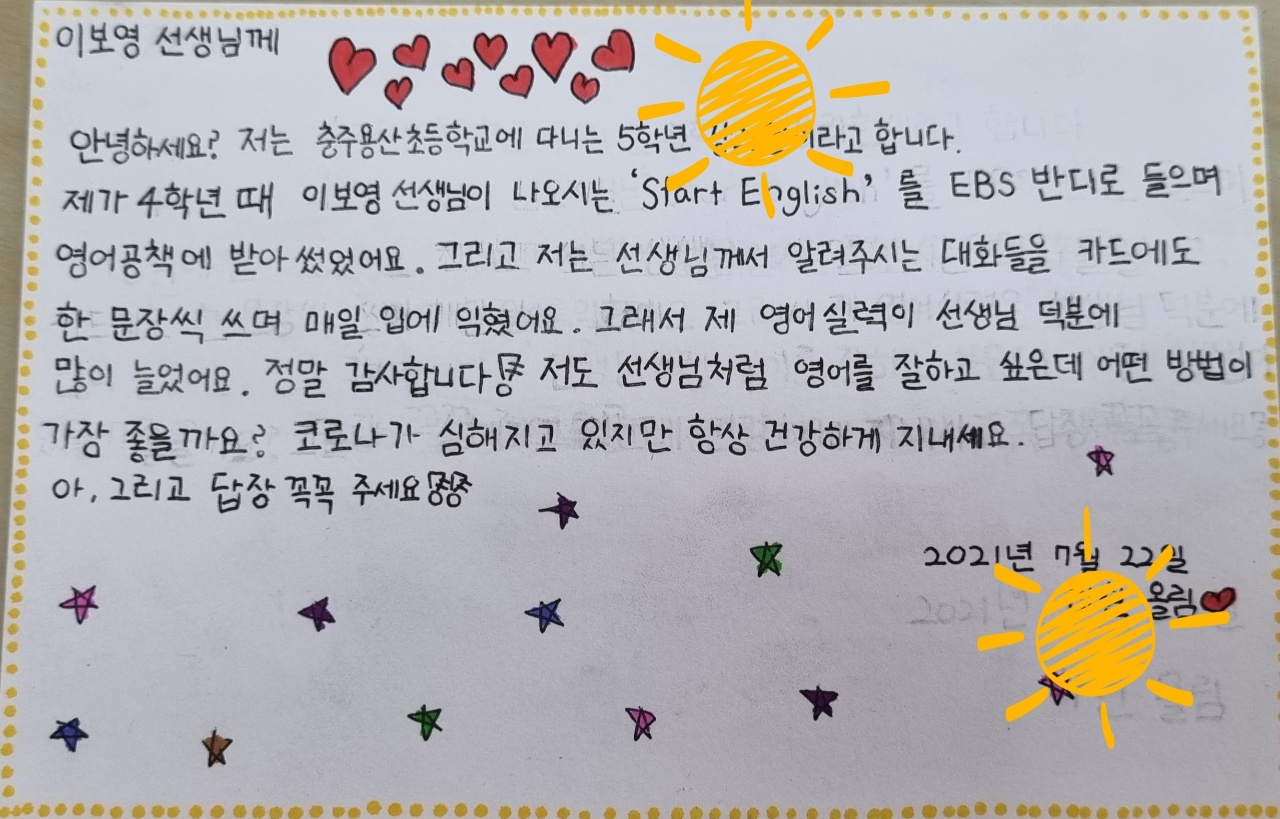 이보영 선생님께
안녕하세요? 저는 충주용산초등학교에 다니는 5학년 이라고 합니다.
제가 4학년 때 이보영 선생님이 나오시는 'Start English' 를 EBS 반디로 들으며
영어공책에 받아 썼었어요. 그리고 저는 선생님께서 알려주시는 대화들을 카드에도
한 문장씩 쓰며 매일 입에 익혔어요. 그래서 제 영어실력이 선생님 덕분에
많이 늘었어요. 정말 감사합니다!! 저도 선생님처럼 영어를 잘하고 싶은데 어떤 방법이
가장 좋을까요? 코로나가 심해지고 있지만 항상 건강하게 지내세요.
아, 그리고 답장 꼭꼭 주세요!!
2021년 7월 22일
올림